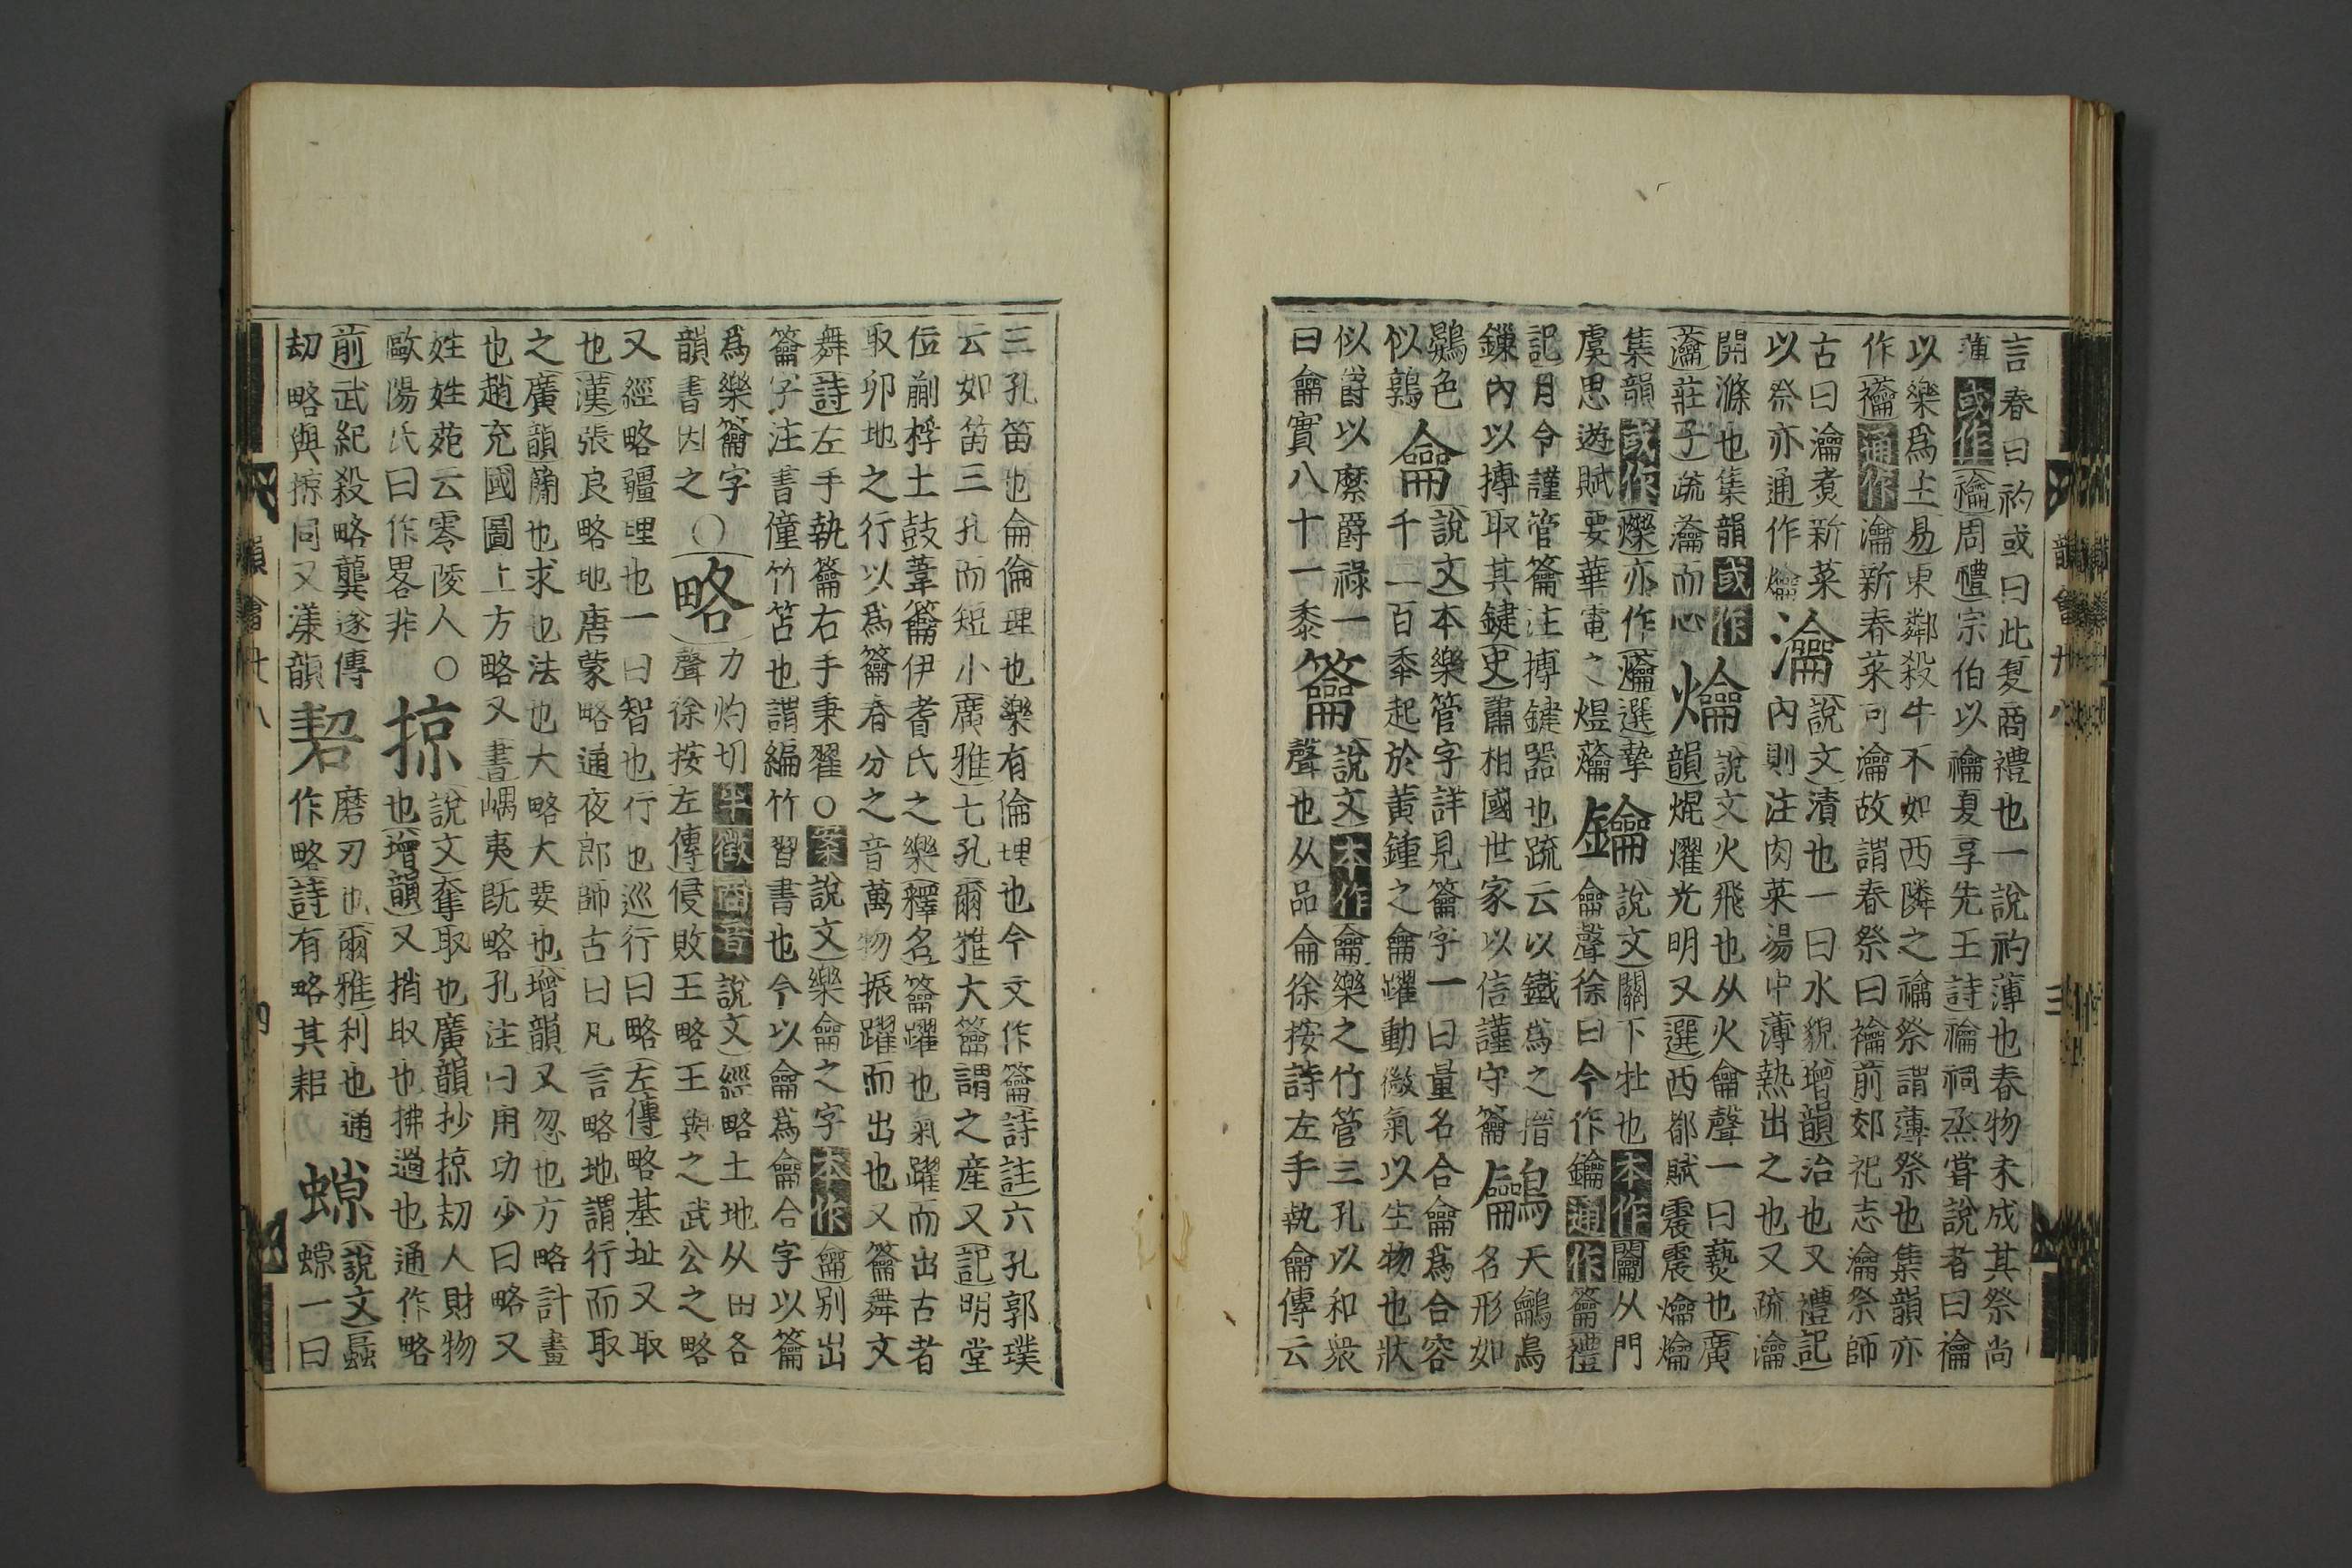 言春曰礿或曰此夏商禮也一說礿薄也春物未成其祭尚
薄或作禴周禮宗伯以禴夏享先王詩禴祠烝甞說者曰禴
以樂爲主易東鄰殺牛不如西隣之禴祭謂薄祭也集韻亦
作䄔通作瀹新春菜可瀹故謂春祭曰禴前郊祀志瀹祭師
古曰瀹煑新菜
以祭亦通作爚
瀹
說文漬也一曰水貌增韻治也又禮記
內則注肉菜湯中薄熱出之也又疏瀹
開滌也集韻或作
𤅢莊子疏瀹而心
爚
說文火飛也从火龠聲一曰爇也廣
韻焜燿光明又選西都賦震震爚爚
集韻或作爍亦作爚選摯
虞思遊賦要華電之煜爚
鑰
說文關下牡也本作闟从門
龠聲徐曰今作鑰通作籥禮
記月令謹管籥注搏鍵器也疏云以鐵爲之𢷤
鏁內以搏取其鍵史蕭相國世家以信謹守籥
鸙
天鸙鳥
名形如
鷃色
似鶉
龠
說文本樂管字詳見籥字一曰量名合龠爲合容
千二百黍起於黃鍾之龠躍動微氣以生物也狀
似爵以縻爵祿一
曰龠實八十一黍
籥
說文本作龠樂之竹管三孔以和衆
聲也从品侖徐按詩左手執龠傳云
韻會廿八
三
三孔笛也侖倫理也樂有倫理也今文作籥詩註六孔郭璞
云如笛三孔而短小廣雅七孔爾雅大籥謂之産又記明堂
位蒯桴土鼓葦籥伊耆氏之樂釋名籥躍也氣躍而出古者
取卯地之行以爲籥春分之音萬物振躍而出也又籥舞文
舞詩左手執籥右手秉翟○案說文樂龠之字本作龠别出
籥字注書僮竹笘也謂編竹習書也今以龠爲龠合字以籥
爲樂籥字
韻書因之○
略
力灼切半徵商音說文經略土地从田各
聲徐按左傳侵敗王略王與之武公之略
又經略疆理也一曰智也行也巡行曰略左傳略基址又取
也漢張良略地唐蒙略通夜郎師古曰凡言略地謂行而取
之廣韻簡也求也法也大略大要也增韻又忽也方略計畫
也趙充國圖上方略又書嵎夷旣略孔注曰用功少曰略又
姓姓苑云零陵人○
歐陽氏曰作畧非
掠
說文奪取也廣韻抄掠刧人財物
也增韻又捎取也拂過也通作略
前武紀殺略龔遂傳
刧略與掠同又漾韻
𠜖
磨刃也爾雅利也通
作略詩有略其耜
蟟
說文蟁
蟟一曰
韻會廿八
四